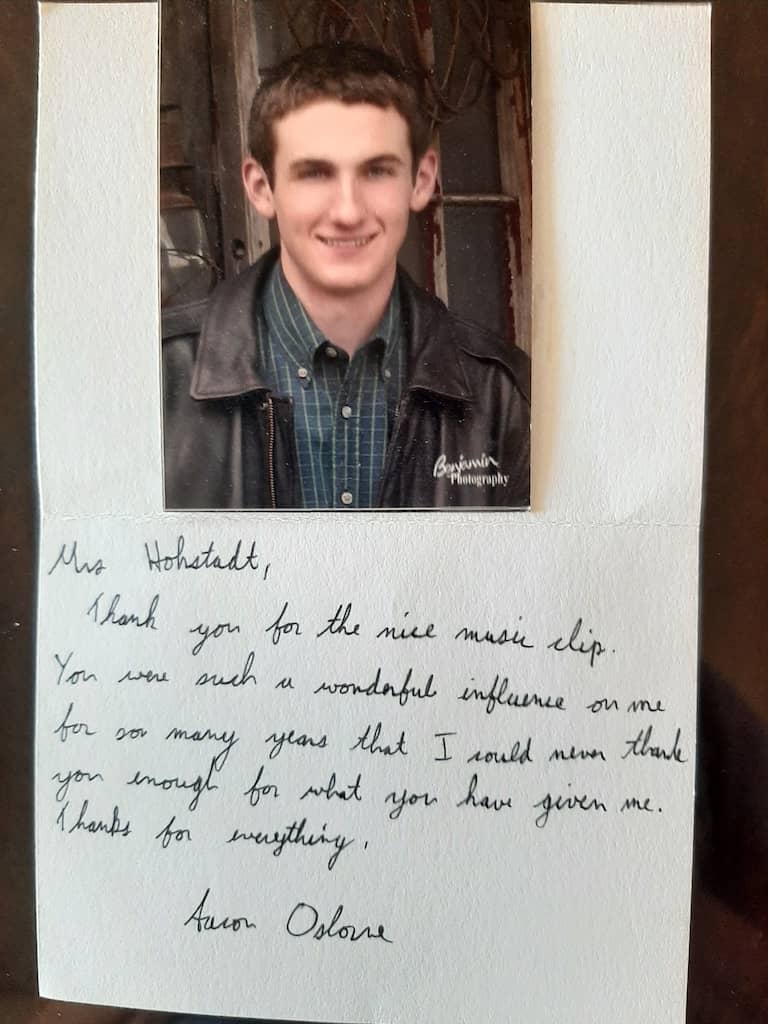 Benjamin
Photography
Mrs Hohstadt,
Thank you for the nice music clip.
You were such a wonderful influence on me
for so many years that I could never thank
you enough for what you have given me.
Thanks for everything,
Aaron Osborne